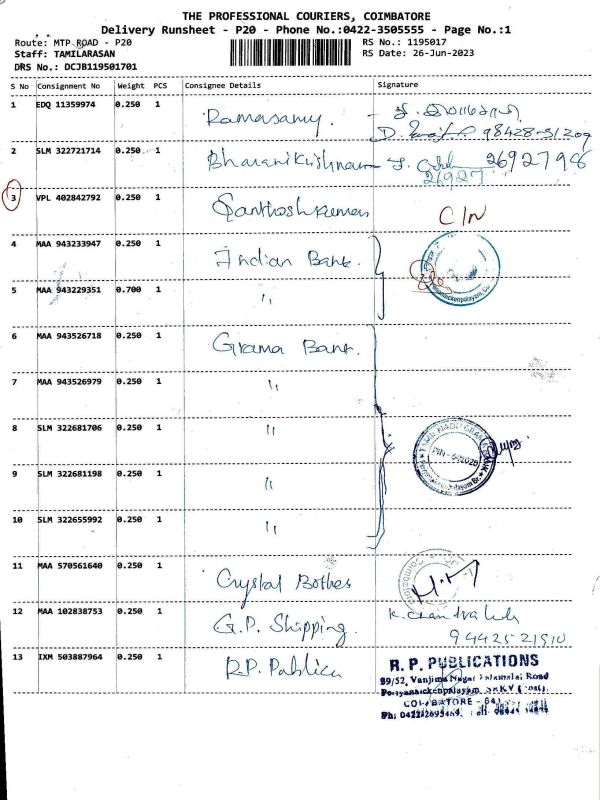 THE PROFESSIONAL COURIERS, COIMBATORE
Delivery Runsheet - P20 - Phone No.:0422-3505555 - Page No.:1
Route: MTP ROAD - P20 RS No.: 1195017
Staff: TAMILARASAN RS Date: 26-Jun-2023
DRS No.: DCJB119501701
S No Consignment No Weight PCS Consignee Details Signature
1 EDQ 11359974 0.250 1 Ramasamy.
D. 98428-51209
2 SLM 322721714 0.250 1 Bharanikrishnan 2692798
26927
3 VPL 402842792 0.250 1 Santhoshkumar C/N
4 MAA 943233947 0.250 1 Indian Bank.
5 MAA 943229351 0.700 1 "
6 MAA 943526718 0.250 1 Grama Bank.
7 MAA 943526979 0.250 1 "
8 SLM 322681706 0.250 1 "
TAMIL NADU GRAMA BANK
9 SLM 322681198 0.250 1 "
10 SLM 322655992 0.250 1 "
11 MAA 570561640 0.250 1 Crystal Bothes
12 MAA 102838753 0.250 1 G.P. Shipping.
94425-21910
13 IXM 503887964 0.250 1 R.P. Publica
R. P. PUBLICATIONS
59/52, Vanjima Nagar Road
Periyanaickenpalayam, SRKV (Post).
COIMBATORE - 641
Ph: 0422-2695464,